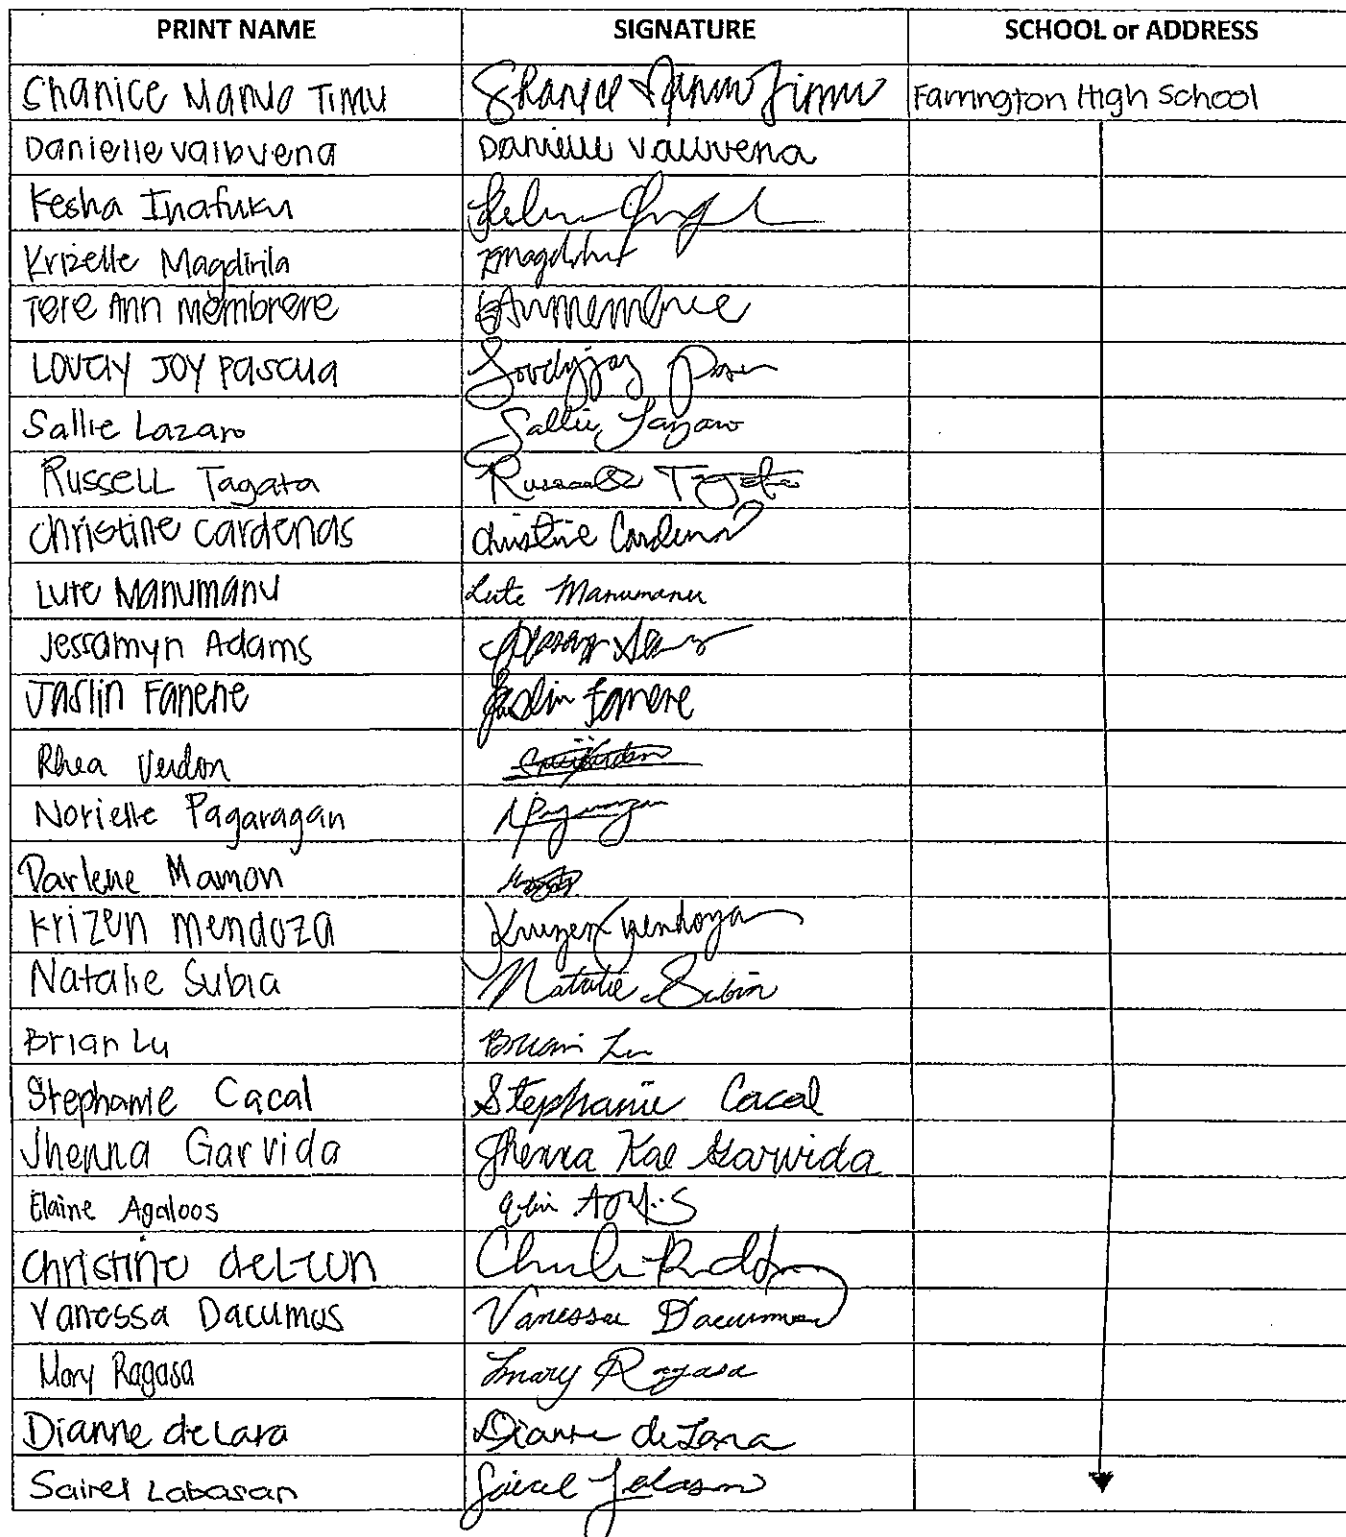 PRINT NAME SIGNATURE SCHOOL or ADDRESS
Shanice Manuo Timu Shanice Timu Farrington High School
Danielle Valbuena Danielle Valbuena
Kesha Inafuku
Krizelle Magdirila
Tere Ann Membrere
Lovely Joy Pascua
Sallie Lazaro Sallie Lazaro
Russell Tagata Russell Tagata
Christine Cardenas Christine Cardenas
Lute Manumanu Lute Manumanu
Jessamyn Adams
Jaslin Fanene Jaslin Fanene
Rhea Verdon
Norielle Pagaragan
Darlene Mamon
Krizen Mendoza Krizen Mendoza
Natalie Subia Natalie Subia
Brian Lu Brian Lu
Stephanie Cacal Stephanie Cacal
Jhenna Garvida Jhenna Kae Garvida
Elaine Agaloos
Christine deLeon
Vanessa Dacumos Vanessa Dacumos
Mary Ragasa Mary Ragasa
Dianne deLara Dianne deLara
Sairel Labasan Sairel Labasan